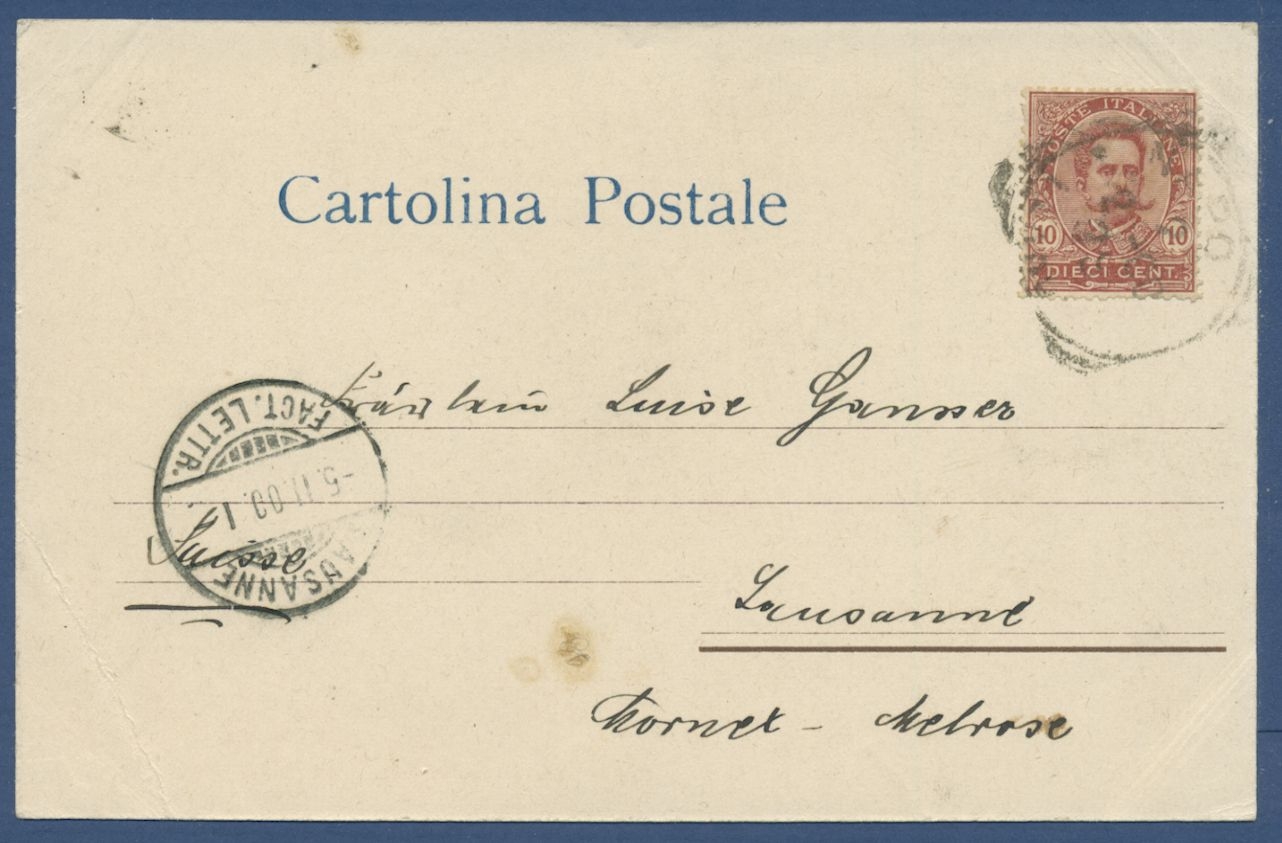 POSTE ITALIANE
10 10
DIECI CENT.
Cartolina Postale
Fräulein Luise Gansser
FACT. LETTR.
-5.II.00.1
LAUSANNE
Suisse
Lausanne
Mornex - Melrose